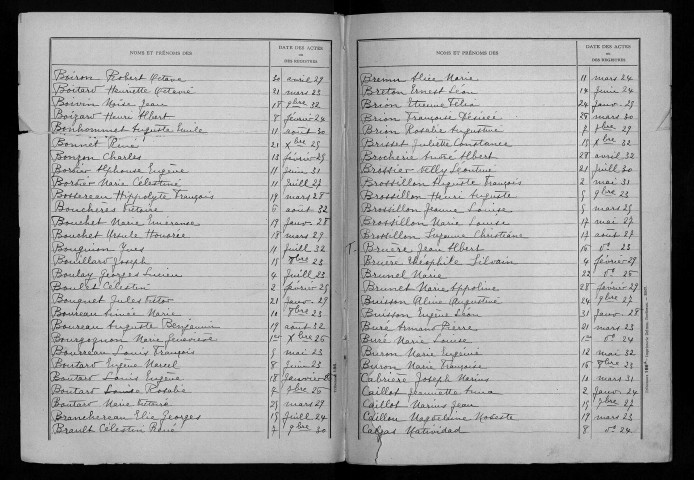 NOMS ET PRÉNOMS DES
DATE DES ACTES
ou
DES REGISTRES
Boiron Robert Octave 20 avril 29
Boitard Henriette Octavie 21 mars 23
Boivin Moïse Jean 18 9bre 32
Boizard Henri Albert 8 février 24
Bonhommet Auguste Emile 11 août 30
Bonnet René 21 Xbre 25
Bonzon Charles 13 février 29
Bordier Alphonse Eugène 11 Juin 31
Bordier Marie Célestine 11 Juill 27
Bossereau Hippolyte François 19 mars 28
Bouchères 6 août 32
Bouchet Marie Emerance 19 Janv 28
Bouchet Ursule Honorée 18 mars 29
Bougnion Yves 11 Juill 32
Bouillard Joseph 15 8bre 23
Boulay Georges Lucien 4 Juill 23
Boulet Célestin 2 février 25
Bouquet Jules Victor 21 Janv 29
Boureau Aimée Marie 10 8bre 23
Boureau Auguste Benjamin 19 août 32
Bourgognon Marie Geneviève 1er Xbre 25
Bourreau Louis François 5 mai 23
Boutard Eugène Marcel 8 Juin 23
Boutard Louis Eugène 18 Janvier
Boutard Louise Rosalie 7 9bre 26
Boutard Marie 25 mars 29
Branchereau Elie Georges 15 Juill 24
Brault Célestin René 7 9bre 30
NOMS ET PRÉNOMS DES
DATE DES ACTES
ou
DES REGISTRES
Bremn Alice Marie 11 mars 24
Breton Ernest Léon 14 Juin 24
Brion Etienne Félix 24 Janv 25
Brion Françoise Désirée 28 mars 30
Brion Rosalie Augustine 7 Xbre 29
Brisset Juliette Constance 15 Xbre 32
Brocherie André Albert 28 avril 32
Brossier Nelly Léontine 21 Juill 30
Brossillon Auguste François 2 mai 31
Brossillon Henri Auguste 5 9bre 23
Brossillon Jeanne Louise 5 mars 25
Brossillon Marie Louise 17 mai 27
Brossillon Suzanne Christiane 12 août 27
T. Bruère Jean Albert 16 do 23
Bruère Théophile Silvain 4 février 29
Brunel Marie 22 do 26
Brunet Marie Appoline 28 février 29
Buisson Aline Augustine 24 9bre 27
Buisson Eugène Léon 31 Janv 28
Buré Armand Pierre 21 mars 23
Buré Marie Louise 1er do 24
Buron Marie Eugénie 12 mai 32
Buron Marie Françoise 16 8bre 23
Cabrière Joseph Marius 10 mars 31
Caillot Jeannette Anna 2 Janv 24
Caillot Marius Jean 15 9bre 27
Caillou Madeleine Modeste 19 mars 23
Calzas Natividad 8 do 24